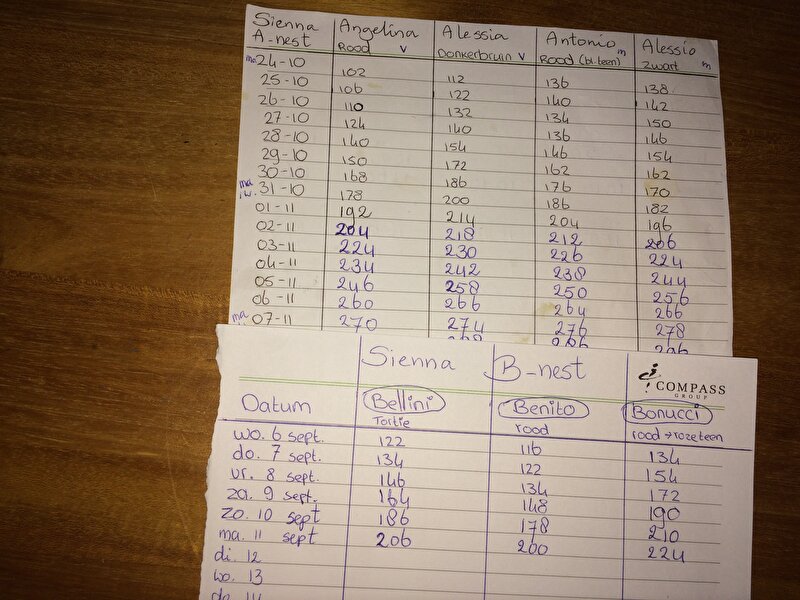 Sienna A-nest Angelina Rood v Alessia Donkerbruin v Antonio Rood (bl. teen) m Alessio zwart m
ma 24-10 102 112 136 138
25-10 106 122 140 142
26-10 110 132 134 150
27-10 124 140 136 146
28-10 140 154 146 154
29-10 150 172 162 162
30-10 168 186 176 170
ma 31-10 178 200 186 182
01-11 192 214 204 196
02-11 204 218 212 206
03-11 224 230 226 224
04-11 234 242 238 244
05-11 246 258 250 256
06-11 260 266 264 266
ma 07-11 270 274 276 278
Sienna B-nest
COMPASS
GROUP
Datum Bellini Benito Bonucci
Tortie rood rood → rozeteen
wo. 6 sept. 122 116 134
do. 7 sept. 134 122 154
vr. 8 sept. 146 134 172
za. 9 sept. 164 148 190
zo. 10 sept 186 178 210
ma. 11 sept 206 200 224
di. 12
wo. 13
do. 14